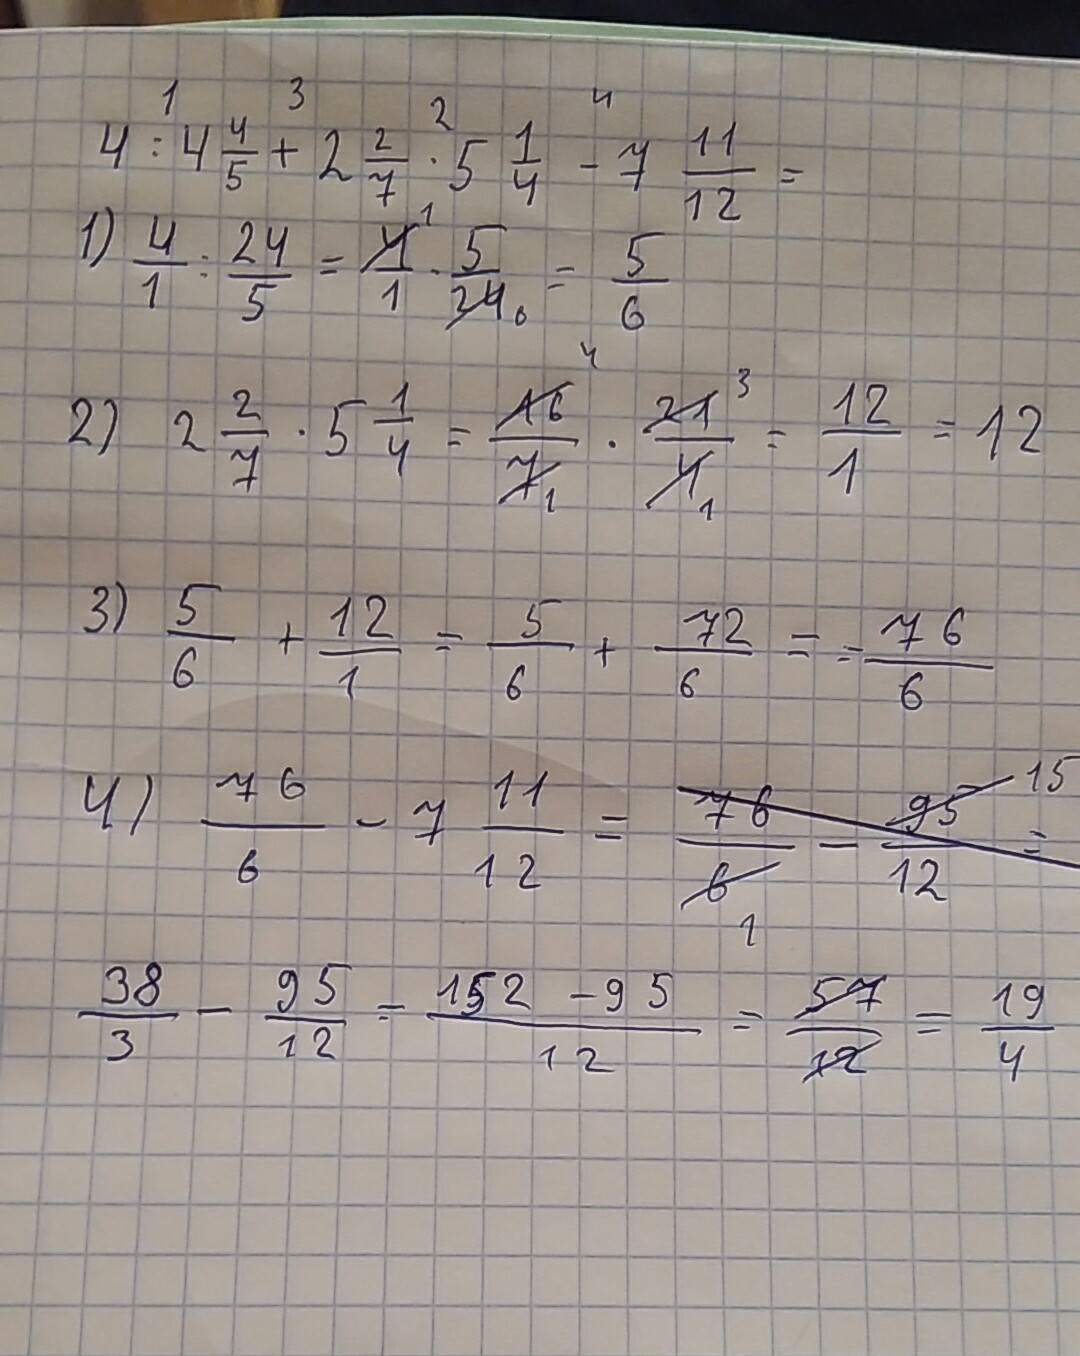 1 3 2 4
4 : 4 4/5 + 2 2/7 · 5 1/4 - 7 11/12 =
1) 4/1 : 24/5 = 4/1 1 · 5/24 6 = 5/6
2) 2 2/7 · 5 1/4 = 16/7 4 1 · 21/4 3 1 = 12/1 = 12
3) 5/6 + 12/1 = 5/6 + 72/6 = = 76/6
4) 76/6 - 7 11/12 = 76/6 1 - 95/12 15 =
38/3 - 95/12 = 152 - 95/12 = 57/12 = 19/4